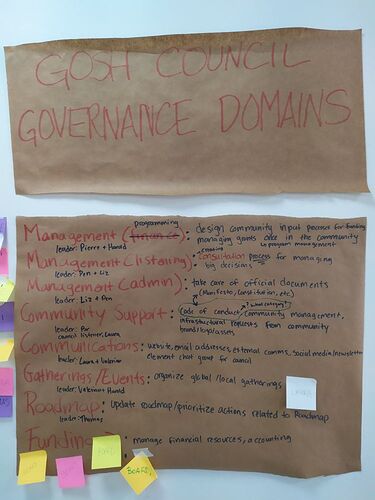 GOSH COUNCIL
GOVERNANCE DOMAINS
programming
Management (finance): design community input processes for funding
leader: Pierre + Harold managing grants once in the community
creating ↳ program management
Management (listening): Consultation process for managing
leader: Pen + Liz big decisions
Management (admin): take care of official documents
leader: Liz + Pen (Manifesto, Constitution, etc)
? what category?
Community Support: Code of conduct, community management,
leader: infrastructural requests from community
council listener: Laura brand/logo/assets
Communications: website, email addresses, external comms, social media/newsletter
leader: Laura + Valerian element chat group for council
Gatherings/Events: organize global/local gatherings
leader: Valerian + Harold
Roadmap: update roadmap/prioritize actions related to Roadmap
leader: Thomas
Funding: manage financial resources, accounting
BOARD